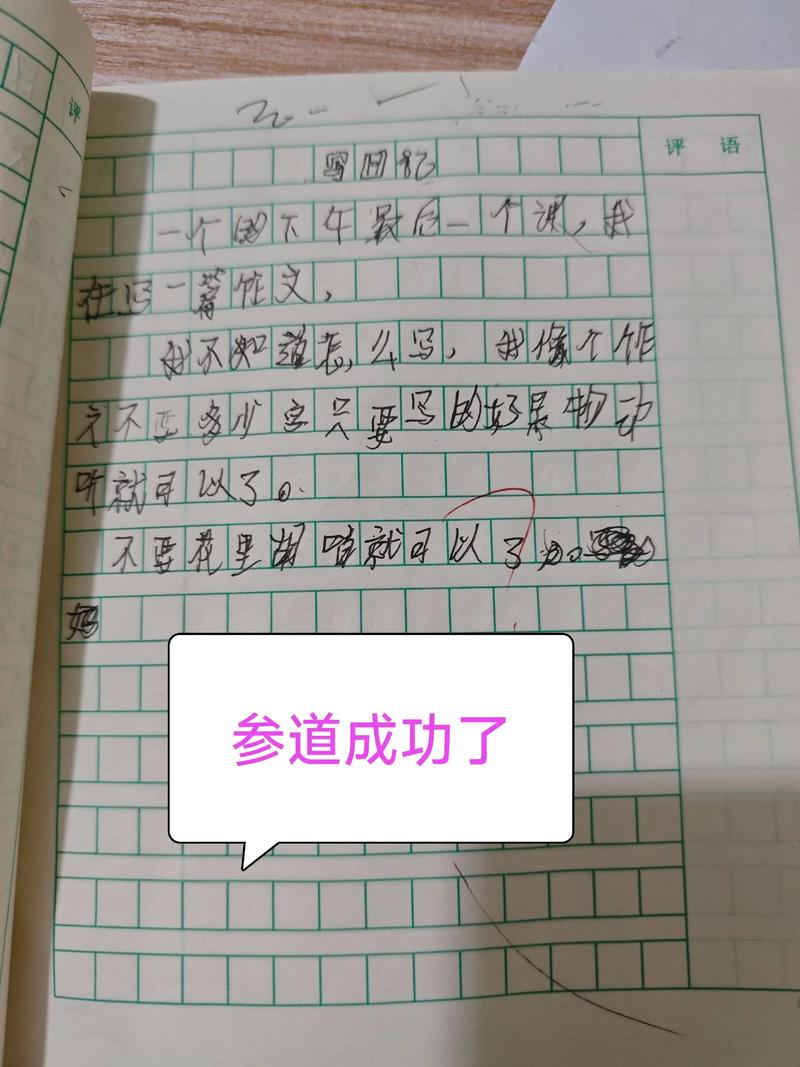 评
评 语
写日记
一个的下午最后一个课，我
在写一篇作文，
我不知道怎么写，我像个作
文不要多少字只要写的好景物动
听就可以了。
不要花里胡哨就可以了
参道成功了